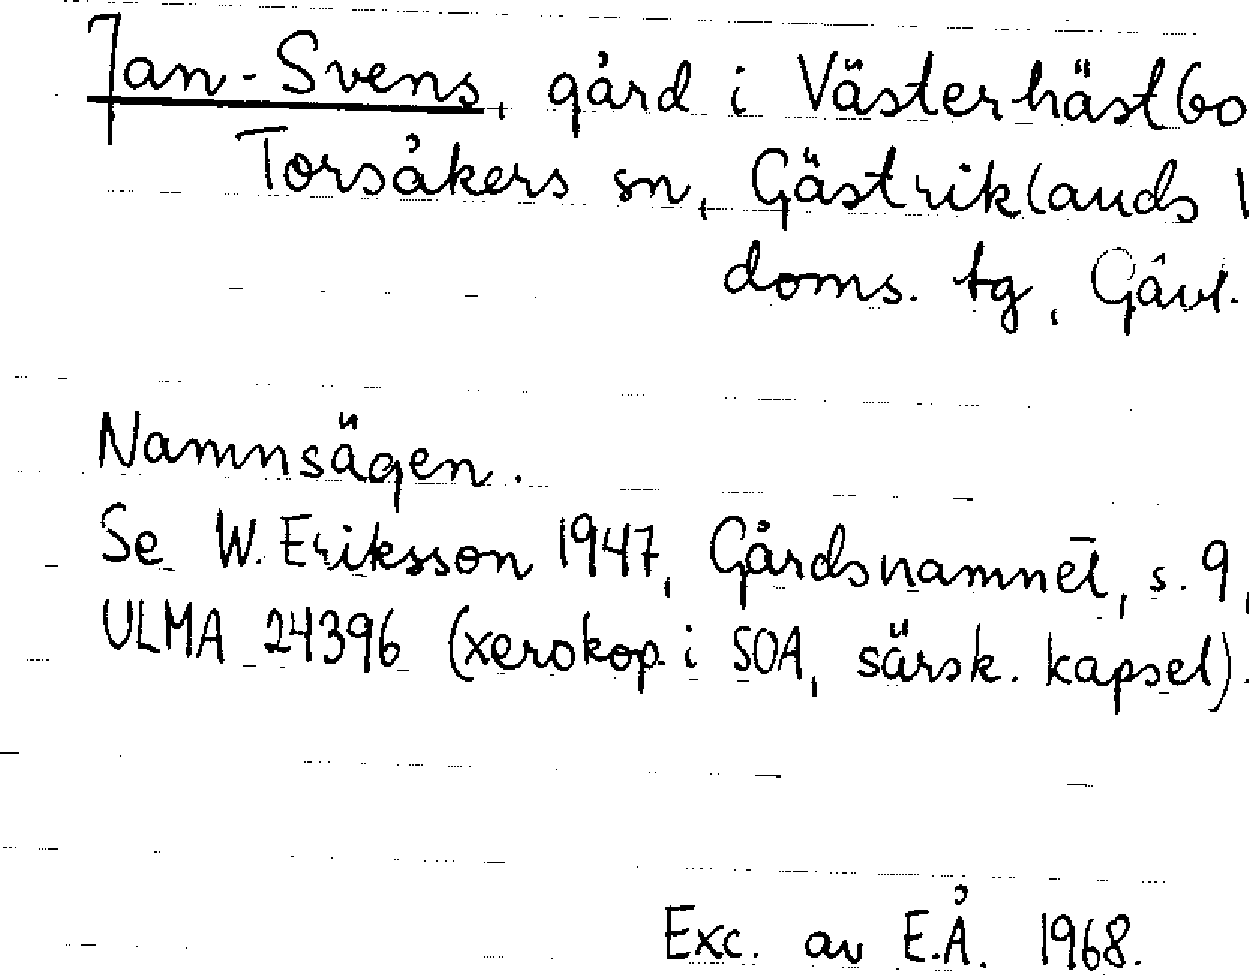 Jan-Svens, gård i Västerhästbo
Torsåkers sn, Gästriklands
doms. tg, Gävl.
Namnsägen.
Se W. Eriksson 1947, Gårdsnamnet, s. 9,
ULMA 24396 (xerokop. i SOA, särsk. kapsel).
Exc. av E.Å. 1968.